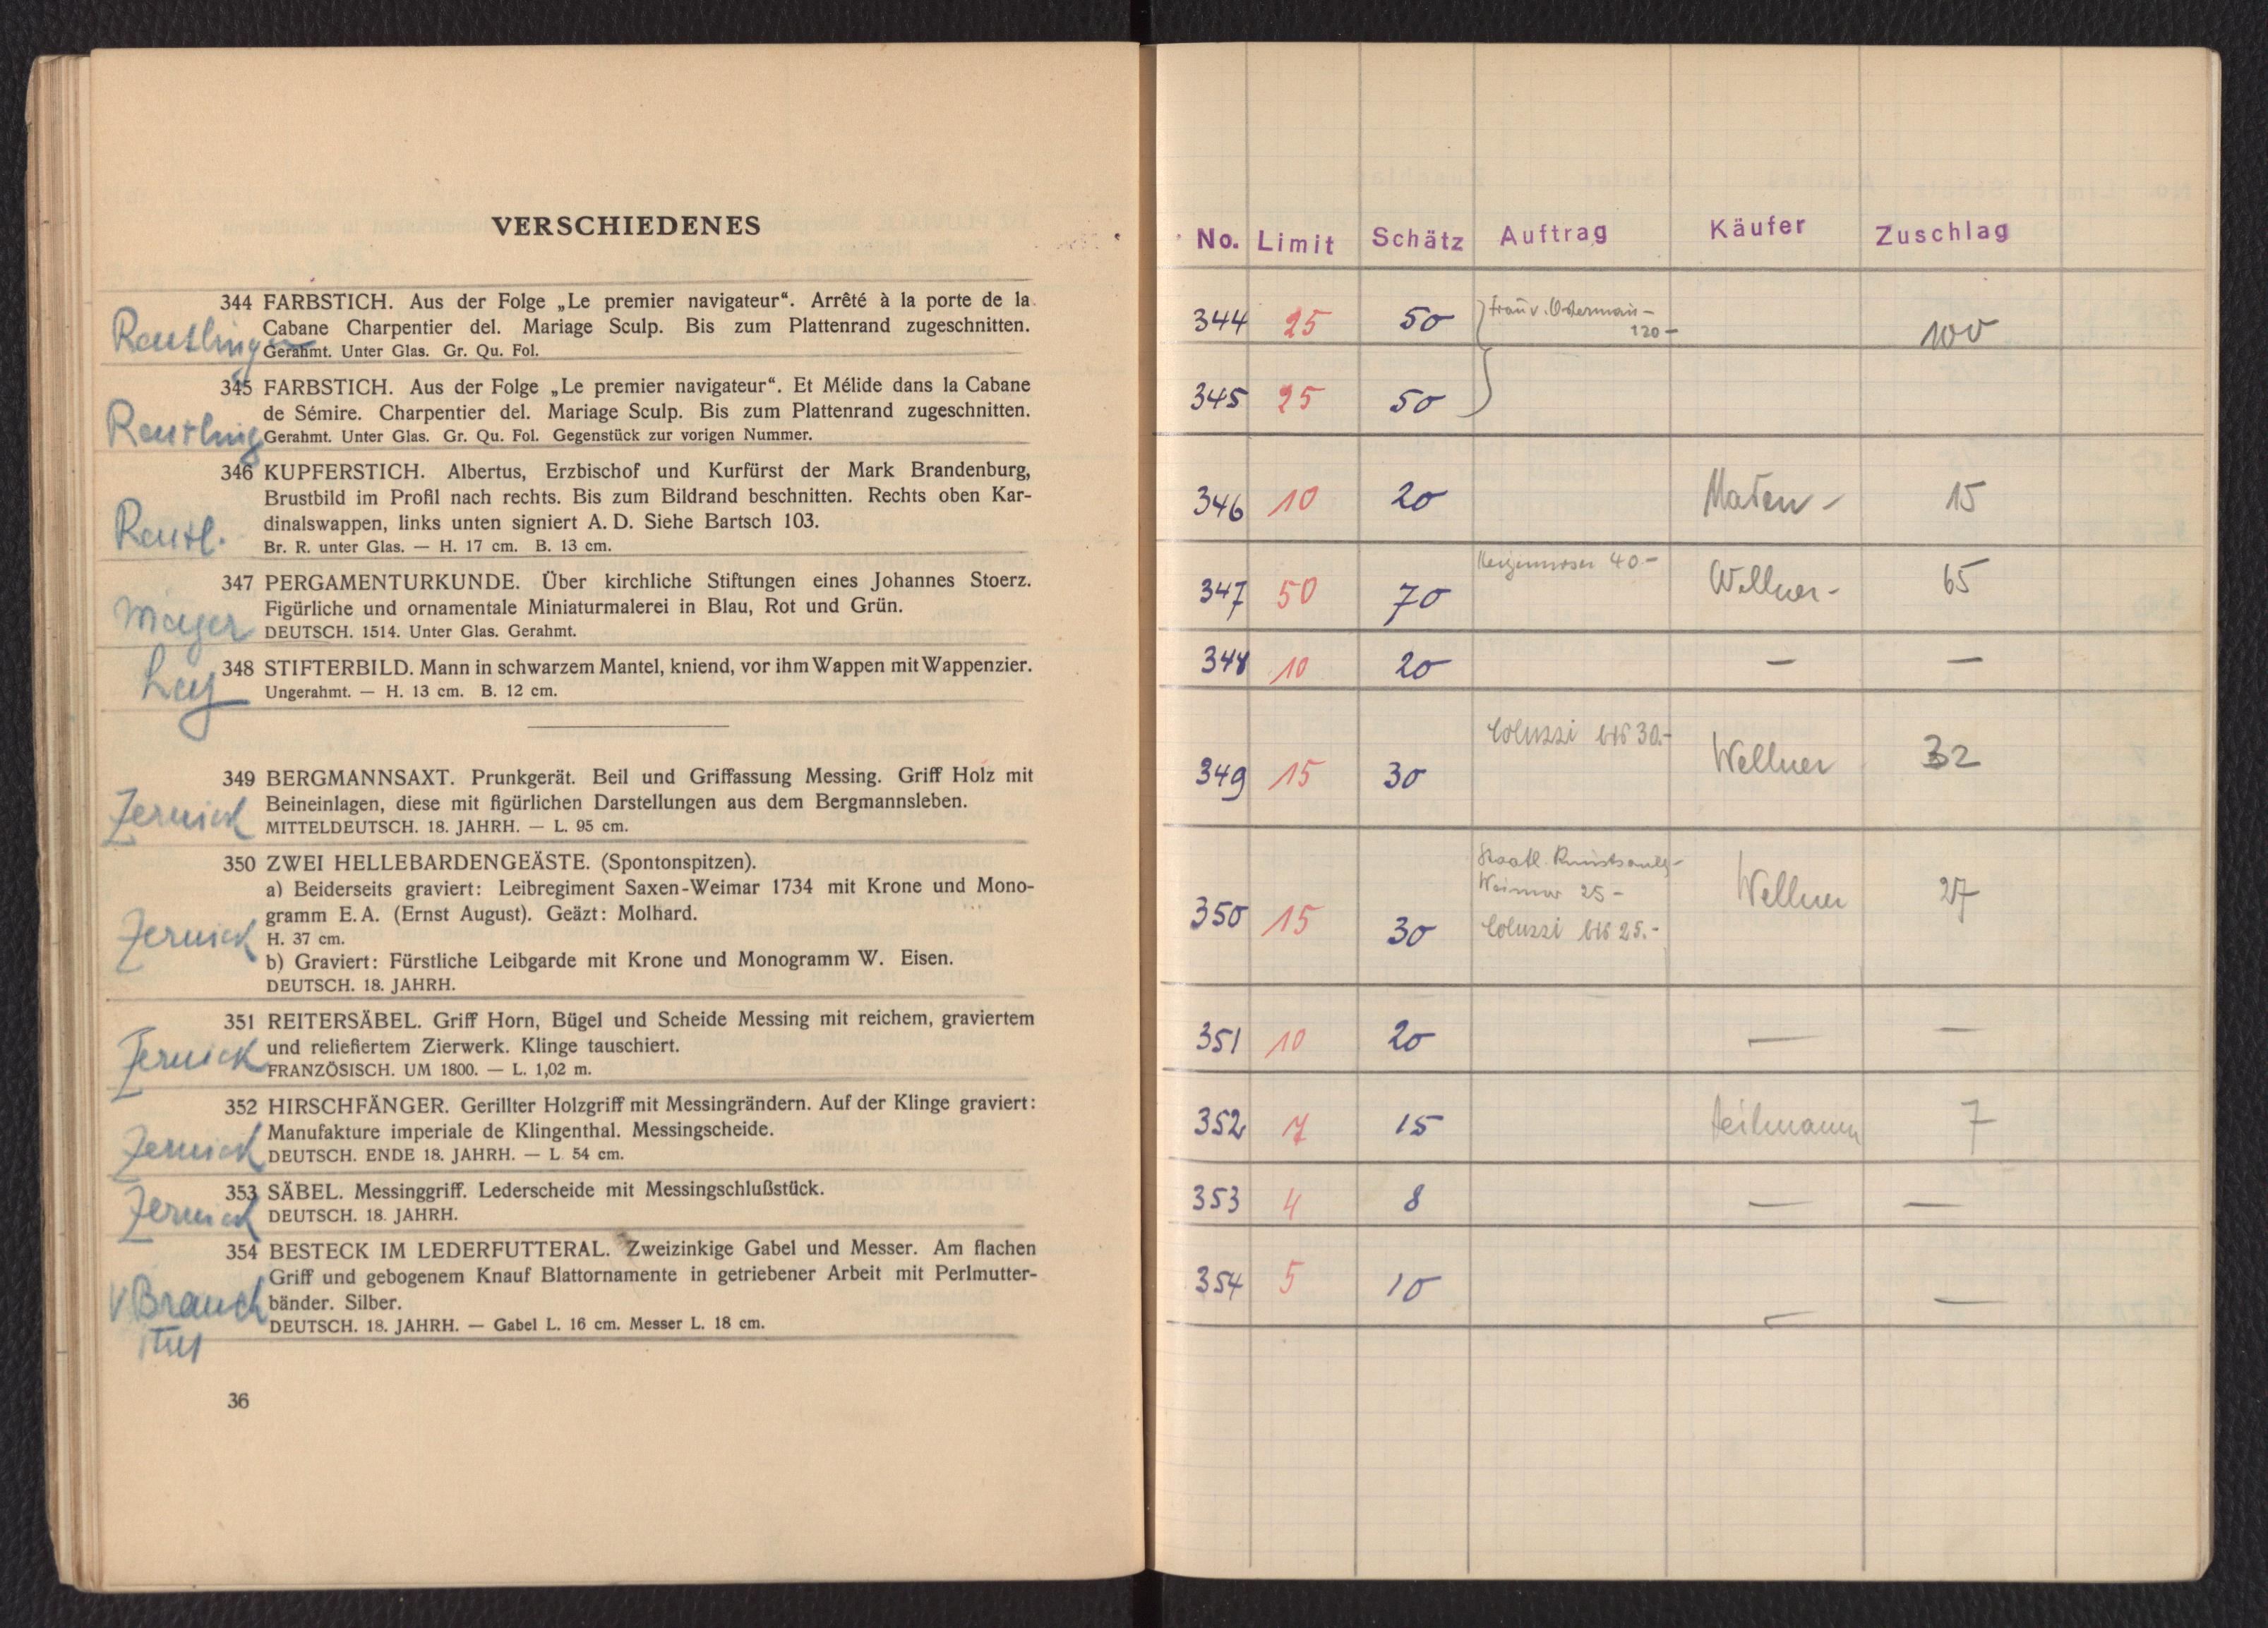 VERSCHIEDENES
344 FARBSTICH. Aus der Folge „Le premier navigateur“. Arrêté à la porte de la
Cabane Charpentier del. Mariage Sculp. Bis zum Plattenrand zugeschnitten.
Gerahmt. Unter Glas. Gr. Qu. Fol.
Reutlinger
345 FARBSTICH. Aus der Folge „Le premier navigateur“. Et Mélide dans la Cabane
de Sémire. Charpentier del. Mariage Sculp. Bis zum Plattenrand zugeschnitten.
Gerahmt. Unter Glas. Gr. Qu. Fol. Gegenstück zur vorigen Nummer.
346 KUPFERSTICH. Albertus, Erzbischof und Kurfürst der Mark Brandenburg,
Brustbild im Profil nach rechts. Bis zum Bildrand beschnitten. Rechts oben Kar-
dinalswappen, links unten signiert A. D. Siehe Bartsch 103.
Br. R. unter Glas. — H. 17 cm. B. 13 cm.
Reutl.
347 PERGAMENTURKUNDE. Über kirchliche Stiftungen eines Johannes Stoerz.
Figürliche und ornamentale Miniaturmalerei in Blau, Rot und Grün.
DEUTSCH. 1514. Unter Glas. Gerahmt.
Mayer
348 STIFTERBILD. Mann in schwarzem Mantel, kniend, vor ihm Wappen mit Wappenzier.
Ungerahmt. — H. 13 cm. B. 12 cm.
Ley
349 BERGMANNSAXT. Prunkgerät. Beil und Griffassung Messing. Griff Holz mit
Beineinlagen, diese mit figürlichen Darstellungen aus dem Bergmannsleben.
MITTELDEUTSCH. 18. JAHRH. — L. 95 cm.
Zernick
350 ZWEI HELLEBARDENGEÄSTE. (Spontonspitzen).
a) Beiderseits graviert: Leibregiment Saxen-Weimar 1734 mit Krone und Mono-
gramm E. A. (Ernst August). Geäzt: Molhard.
H. 37 cm.
Zernick
b) Graviert: Fürstliche Leibgarde mit Krone und Monogramm W. Eisen.
DEUTSCH. 18. JAHRH.
351 REITERSÄBEL. Griff Horn, Bügel und Scheide Messing mit reichem, graviertem
und reliefiertem Zierwerk. Klinge tauschiert.
FRANZÖSISCH. UM 1800. — L. 1,02 m.
Zernick
352 HIRSCHFÄNGER. Gerillter Holzgriff mit Messingrändern. Auf der Klinge graviert:
Manufakture imperiale de Klingenthal. Messingscheide.
DEUTSCH. ENDE 18. JAHRH. — L. 54 cm.
Zernick
353 SÄBEL. Messinggriff. Lederscheide mit Messingschlußstück.
DEUTSCH. 18. JAHRH.
Zernick
354 BESTECK IM LEDERFUTTERAL. Zweizinkige Gabel und Messer. Am flachen
Griff und gebogenem Knauf Blattornamente in getriebener Arbeit mit Perlmutter-
bänder. Silber.
DEUTSCH. 18. JAHRH. — Gabel L. 16 cm. Messer L. 18 cm.
v Brauch
36
No. Limit Schätz Auftrag Käufer Zuschlag
344 25 50 Frau v. Ostermann - 120 - 100
345 25 50
346 10 20 15
347 50 70 40 - Wellner - 65
348 10 20 — —
349 15 30 Coluzzi bis 30.- Wellner 32
350 15 30 Staatl. Kunstsamlg - Weimar 25 - Coluzzi bis 25.- Wellner 27
351 10 20 — —
352 7 15 Heilmann 7
353 4 8 — —
354 5 10 — —